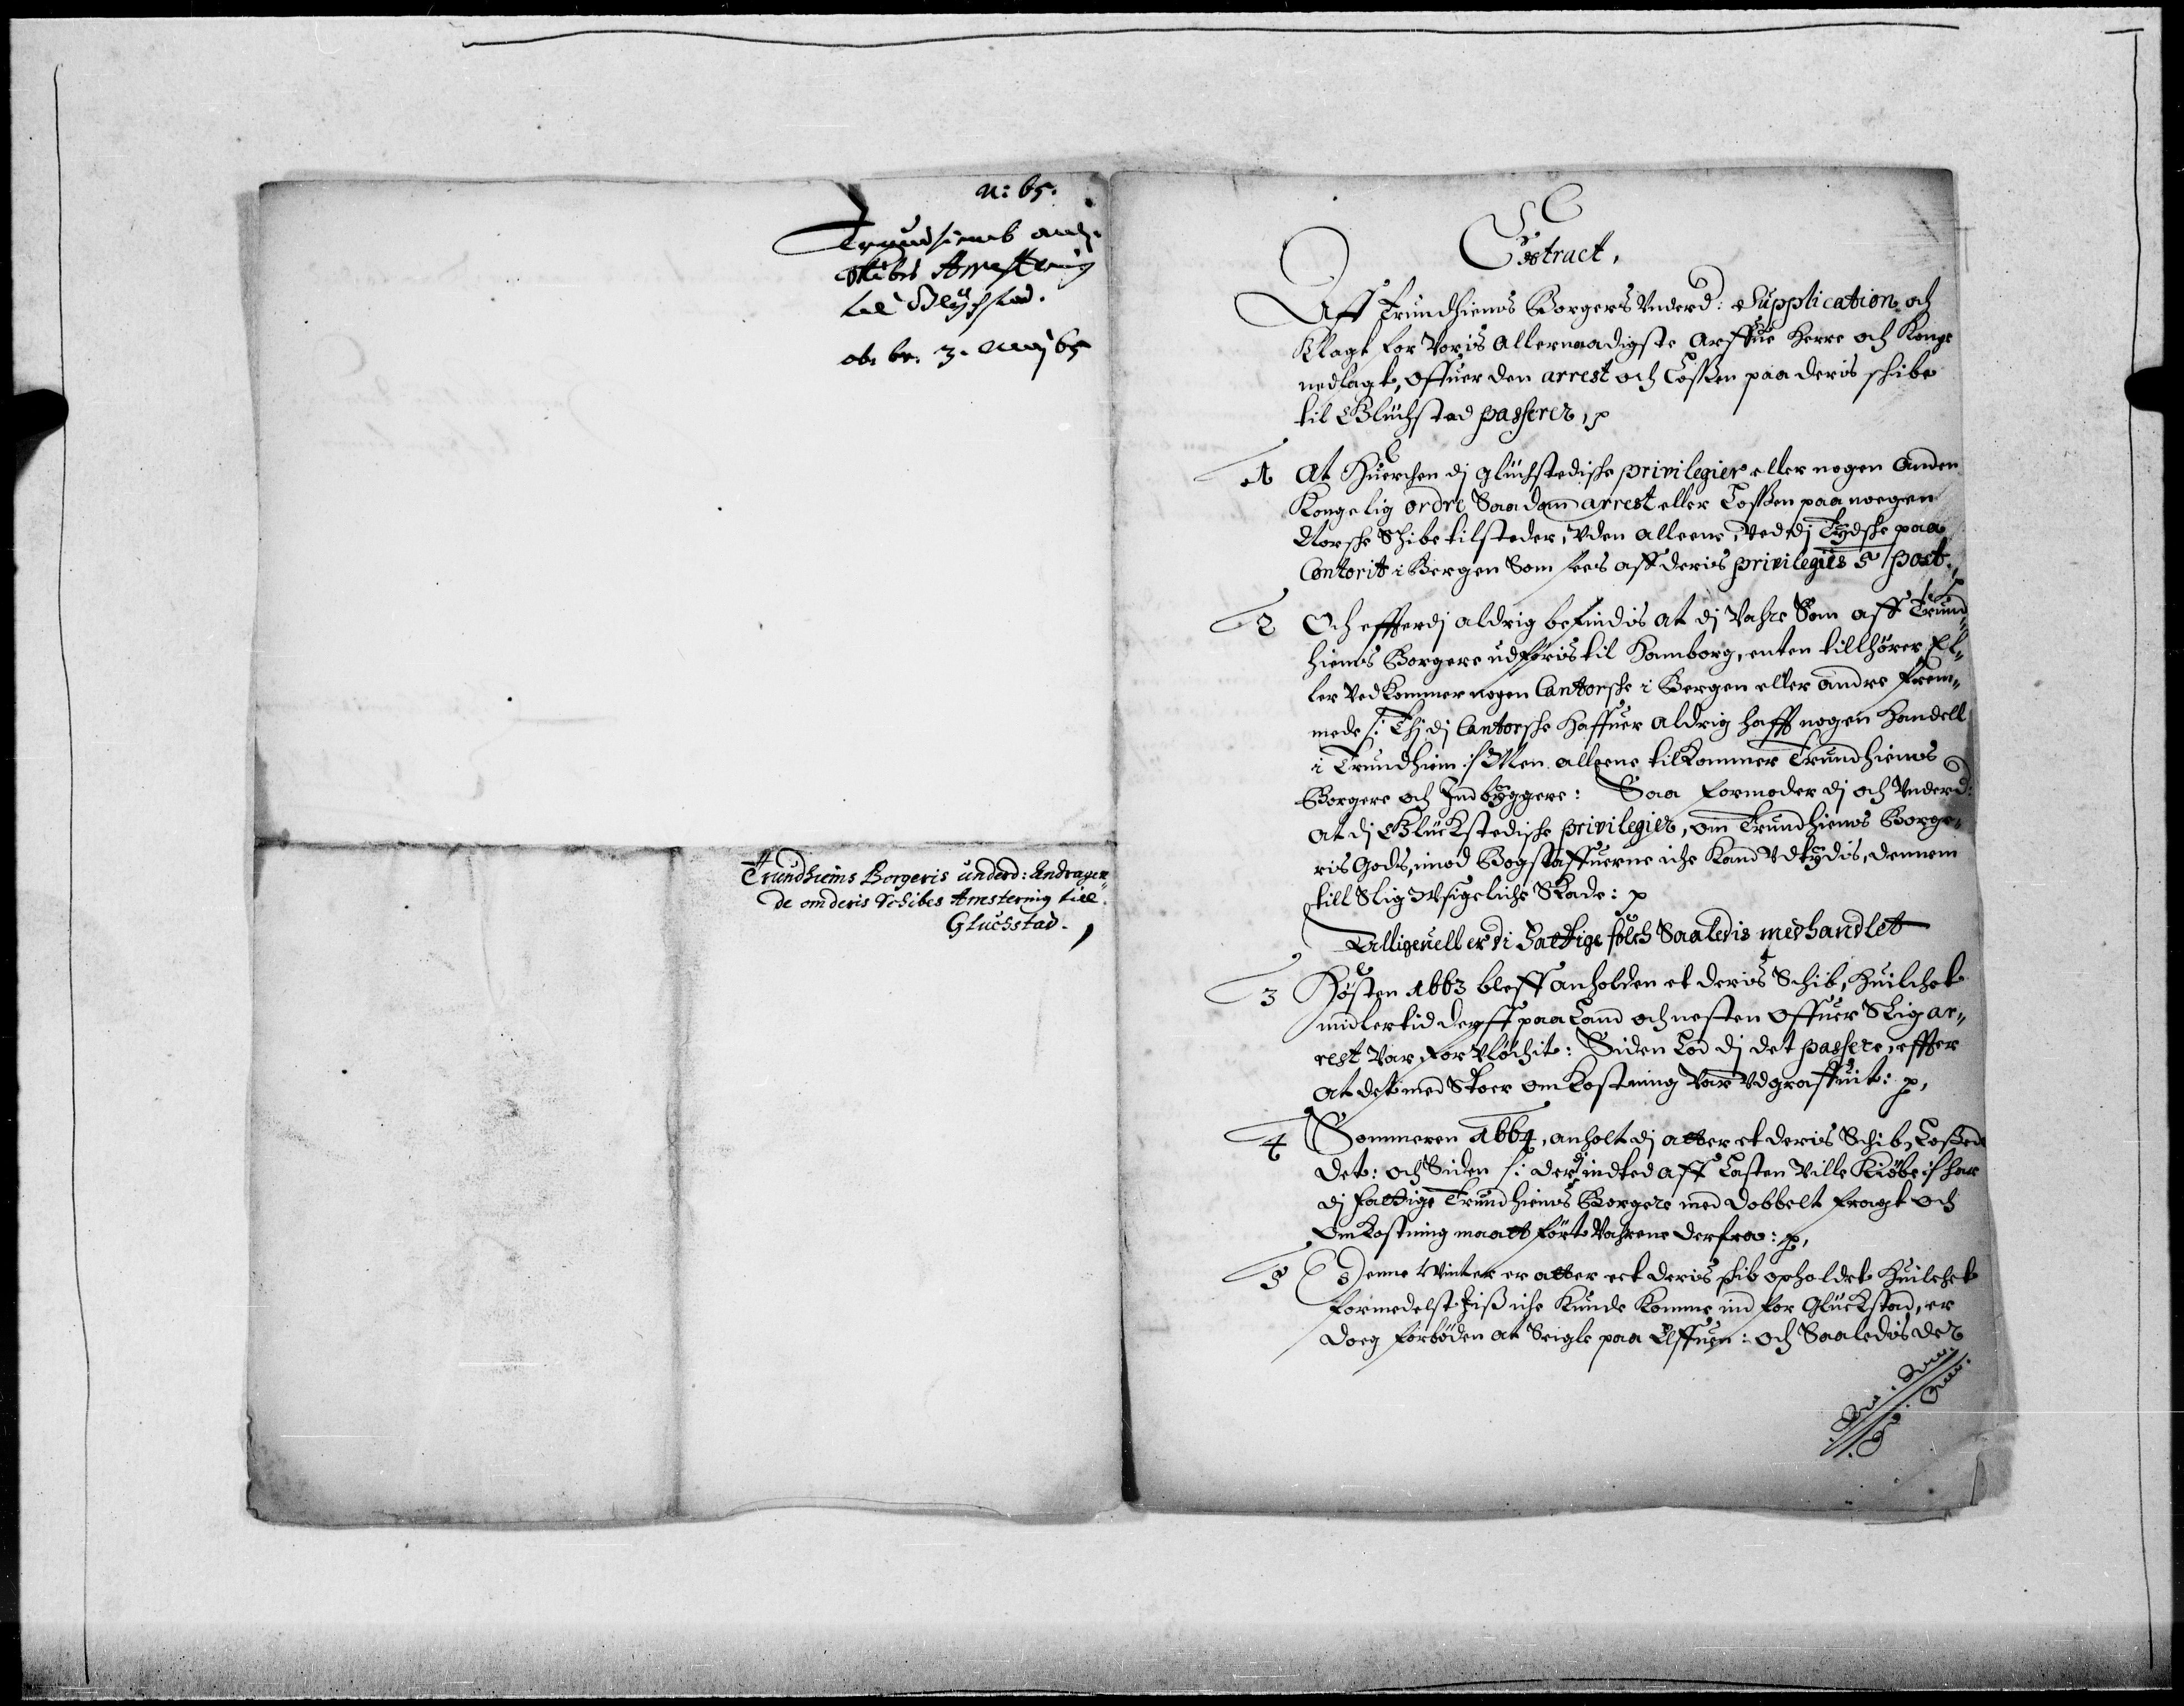 n: 65.
Trundhiemb
Skibs Arrestering
til Glychstad.
3. Maij 65
Trundhiems Borgeris underd: Andragen„
de om deris Schibes Arrestering till
Gluchstad.
Extract,
Aff Trundhiems Borgers Underd: Supplication och
Klage for Voris Allernaadigste Arffue Herre och Konge
nedlagt, Offuer den arrest och Lossen paa deris schibe
til Glüchstad passerer, p
1 At Huerchen dj glüchstedische privilegier eller nogen anden
Kongelig ordre Saadan arrest eller Lossen paa noegen
Norsche Schibe tilsteder, Uden alleene, Ved dj Tydsche paa
Contorit i Bergen Som sees aff deris privilegiis 5 post.
2 Och effterdj aldrig befindis at dj Vahre Som aff Trund„
hiems Borgere udføris til Hamborg, enten tillhører El„
ler Ved kommer nogen Cantorsche i Bergen eller andre frem„
mede /: Thj dj Cantorsche Haffuer aldrig hafft nogen Handell
i Trundhiem :/ Men alleene tilkommer Trundhiems
Borgere och Indbyggere: Saa formoder dj och Underd:
at dj Glückstedische privilegier, om Trundhiems Borge„
ris Gods, imod Bogstaffuerne iche Kand Udtydis, dennem
till Slig Usigeliche Skade: p
Alligeuell er di Fattige folch Saaledis medhandlet
3 Høsten 1663 bleff anholden et deris Schib, Huilchet
midlertid dreff paa Land och nesten Offuer Slig ar„
rest Var for Uløchit: Siden Lod dj det passere, effter
at det med Stoer omkostning Var Udgraffuit: p,
4 Sommeren 1664, anholt dj atter et deris Schib, Lossed
det: och Siden /: der dj indted aff Lasten Ville Kiøbe :/ har
dj fattige Trundhiems Borgere med dobbelt fragt och
Omkostning maatt ført Vahrene derfra: p,
5 Denne Winter er atter eet deris schib opholdet Huilchet
formedelst Jiss iche Kunde Komme ind for Glückstad, er
doeg forbøden at Seigle paa Elffuen: och Saaledis der